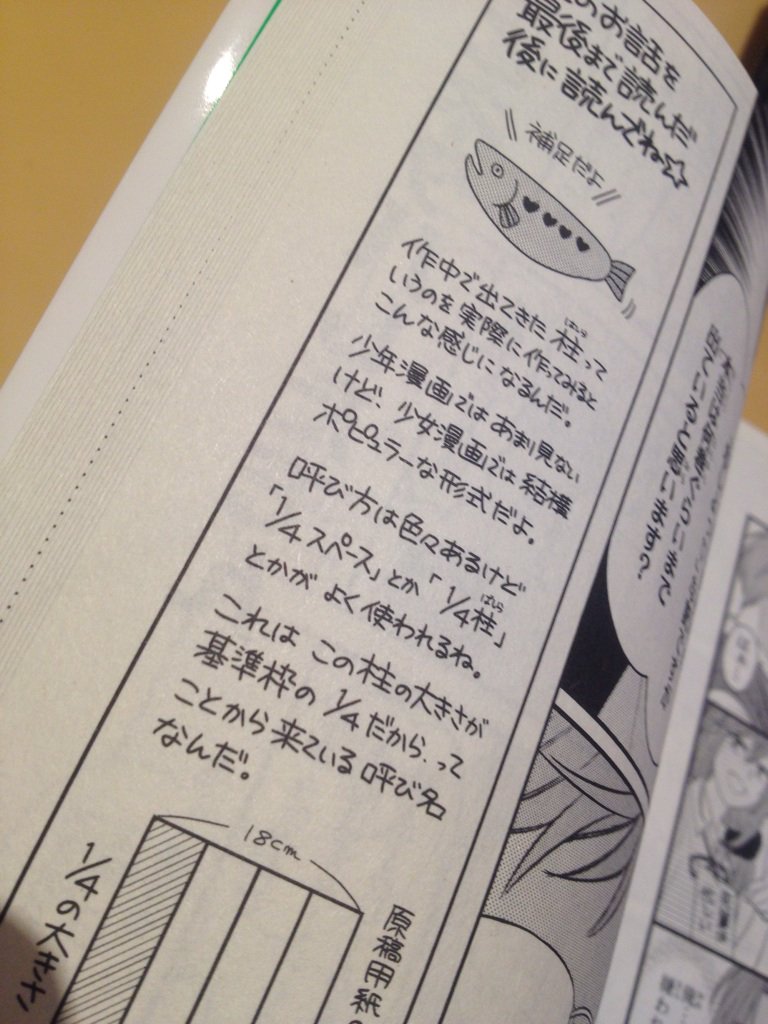 のお話を
最後まで読んだ
後に読んでね☆
補足だよ
作中で出てきた柱って
はしら
いうのを実際に作ってみると
こんな感じになるんだ。
少年漫画ではあまり見ない
けど、少女漫画では結構
ポピュラーな形式だよ。
呼び方は色々あるけど
「1/4スペース」とか「1/4柱」
ばしら
とかがよく使われるね。
これはこの柱の大きさが
基準枠の1/4だから、って
ことから来ている呼び名
なんだ。
18cm
1/4の大きさ
原稿用紙の